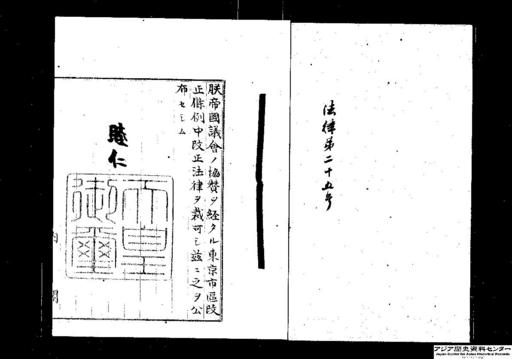 法律第二十五号
朕帝國議會ノ協賛ヲ経タル東京市區改
正條例中改正法律ヲ裁可シ茲ニ之ヲ公
布セシム
睦仁
天皇
御璽
内閣
アジア歴史資料センター
Japan Center for Asian Historical Records